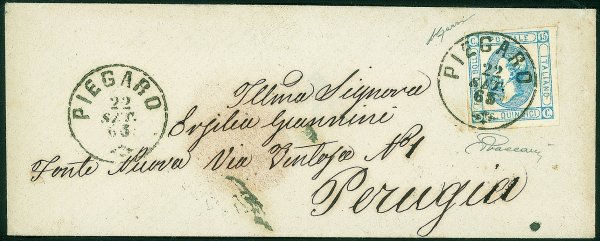 PIEGARO
22
SET.
63
PIEGARO
22
SET.
63
C. 15
BOLLO
POSTALE
ITALIANO
QUINDICI
C.
Illma Signora
Ersilia Giannini
Fonte Nuova Via Ventosa N° 1
Perugia